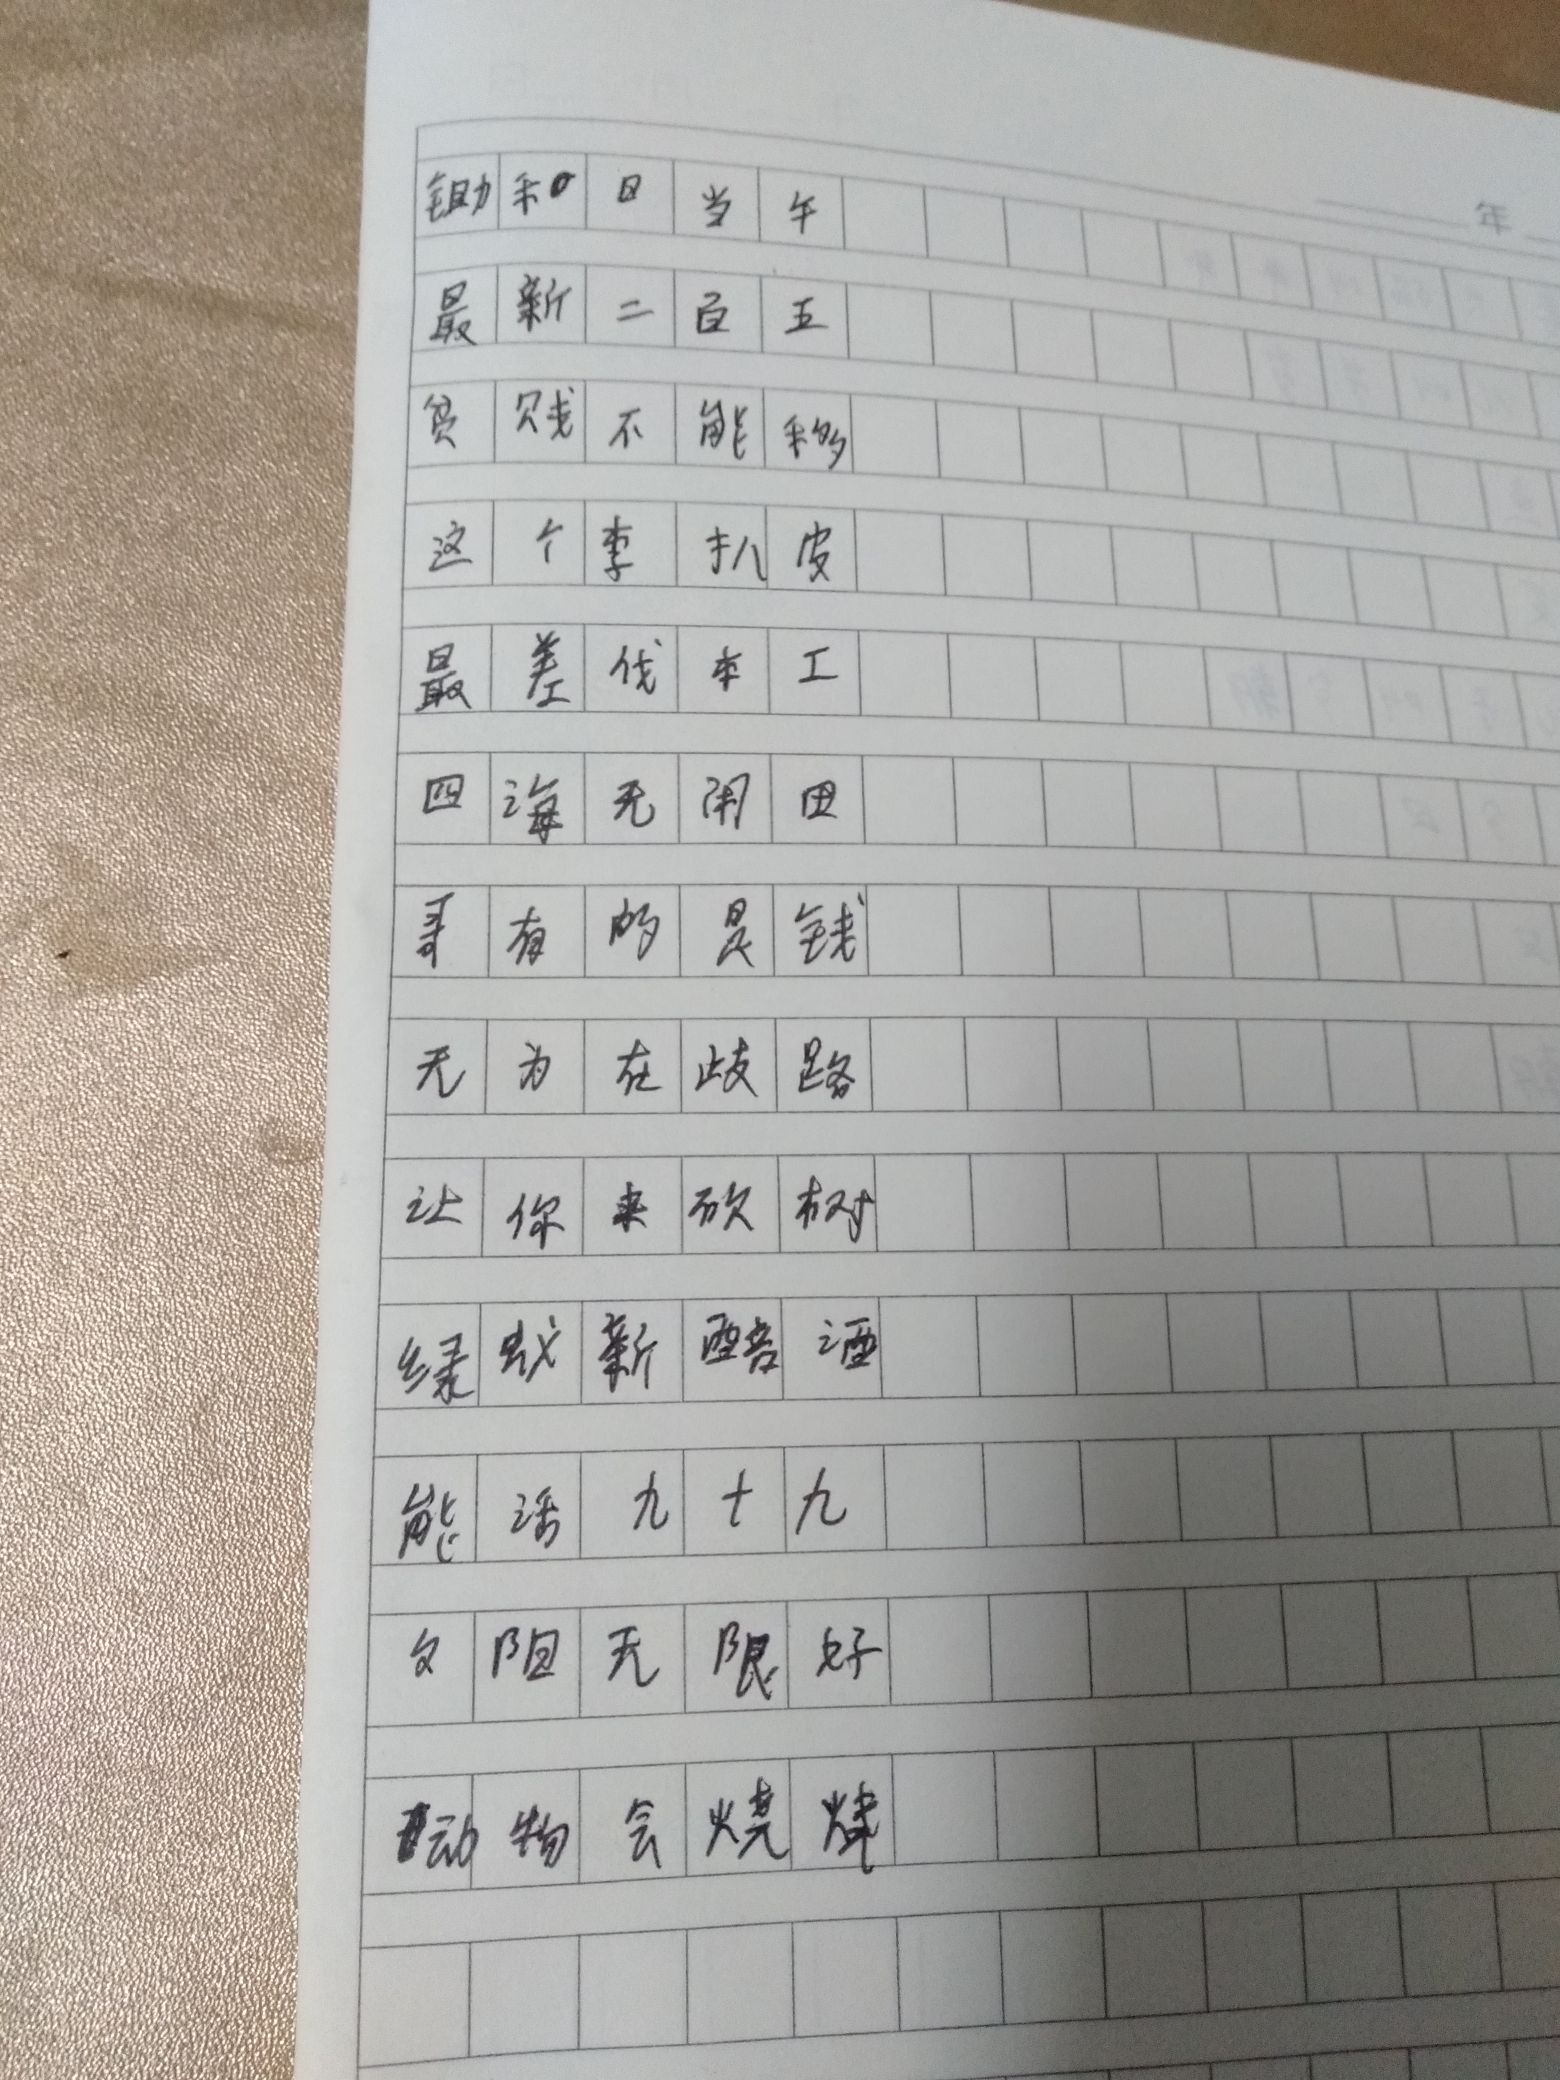 锄和日当午
最新二百五
贫贱不能移
这个李扒皮
最差伐本工
四海无闲田
哥有的是钱
无为在歧路
让你来砍树
绿戕新醅酒
能活九十九
夕阳无限好
动物会烧烤
年